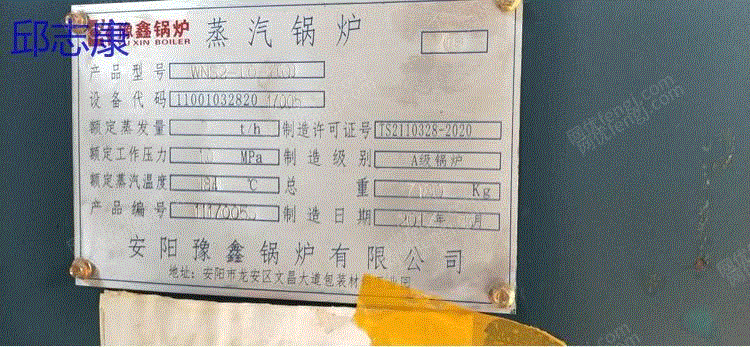 邱志康
豫鑫锅炉 蒸汽锅炉
YUXIN BOILER
产品型号 WNS2-1.0
设备代码 11001032820 17005
额定蒸发量 t/h 制造许可证号 TS2110328-2020
额定工作压力 MPa 制造级别 A级锅炉
额定蒸汽温度 184 ℃ 总 重 Kg
产品编号 1117005 制造日期 月
安阳豫鑫锅炉有限公司
地址:安阳市龙安区文昌大道包装材